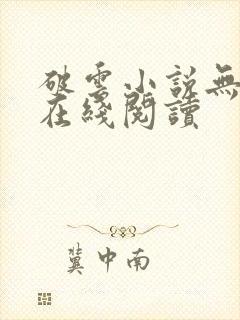 破雲小說無
在綫閱讀
冀中南